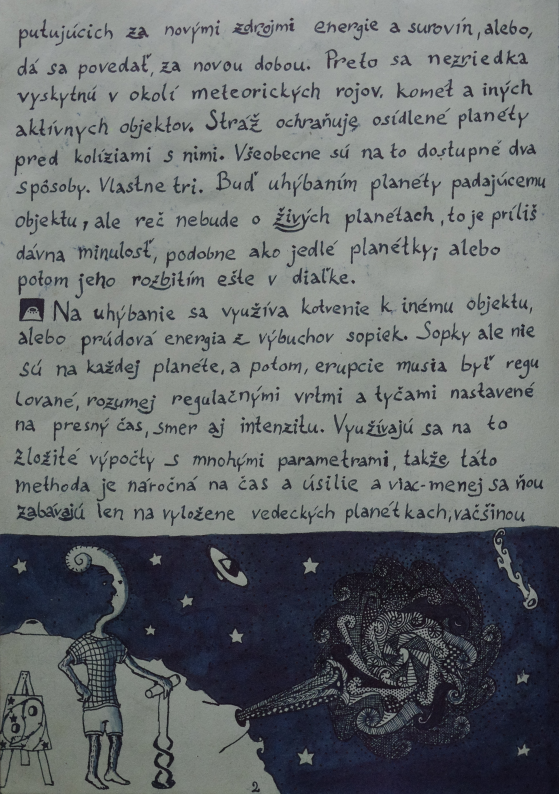 putujúcich za novými zdrojmi energie a surovín, alebo,
dá sa povedať, za novou dobou. Preto sa nezriedka
vyskytnú v okolí meteorických rojov, komét a iných
aktívnych objektov. Stráž ochraňuje osídlené planéty
pred kolíziami s nimi. Všeobecne sú na to dostupné dva
spôsoby. Vlastne tri. Buď uhýbaním planéty padajúcemu
objektu, ale reč nebude o živých planétach, to je príliš
dávna minulosť, podobne ako jedlé planétky; alebo
potom jeho rozbitím ešte v diaľke.
Na uhýbanie sa využíva kotvenie k inému objektu,
alebo prúdová energia z výbuchov sopiek. Sopky ale nie
sú na každej planéte, a potom, erupcie musia byť regu
lované, rozumej regulačnými vrtmi a tyčami nastavené
na presný čas, smer aj intenzitu. Využívajú sa na to
zložité výpočty s mnohými parametrami, takže táto
methoda je náročná na čas a úsilie a viac-menej sa ňou
zabávajú len na vyložene vedeckých planétkach, väčšinou
2